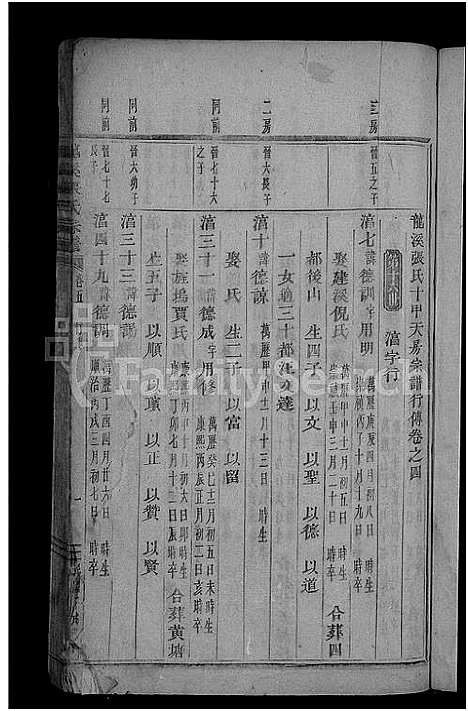 龍溪張氏十甲天房宗譜行傳卷之四
滈字行
三房
晉五之子
滈七 諱德訓 字用明 萬曆庚辰四月初八日 時生
十月十九日 時卒
娶建溪倪氏 萬曆甲申十一月初五日 時生
壬申三月二十日 時卒 合葬四
都後山 生四子 以文 以聖 以德 以道
一女適三十都汪文達
二房
晉六長子
滈十 諱德諒 萬曆甲申 月十三日 時生
娶 氏 生二子 以富 以留
同前
晉七十六之子
滈三十一 諱德成 字用 萬曆癸巳十二月初五日未時生
康熙丙辰正月初二日亥時卒
娶旌塢賈氏 丙申十月初六日卯時生
丁卯七月十二日辰時卒 合葬黃塘
生五子 以順 以璸 以正 以贊 以賢
同前
晉六幼子
滈三十三 諱德
同前
晉七十七長子
滈四十九 諱德 萬曆丁酉四月廿六日 時生
順治丙戌三月初七日 時卒
FamilySearch